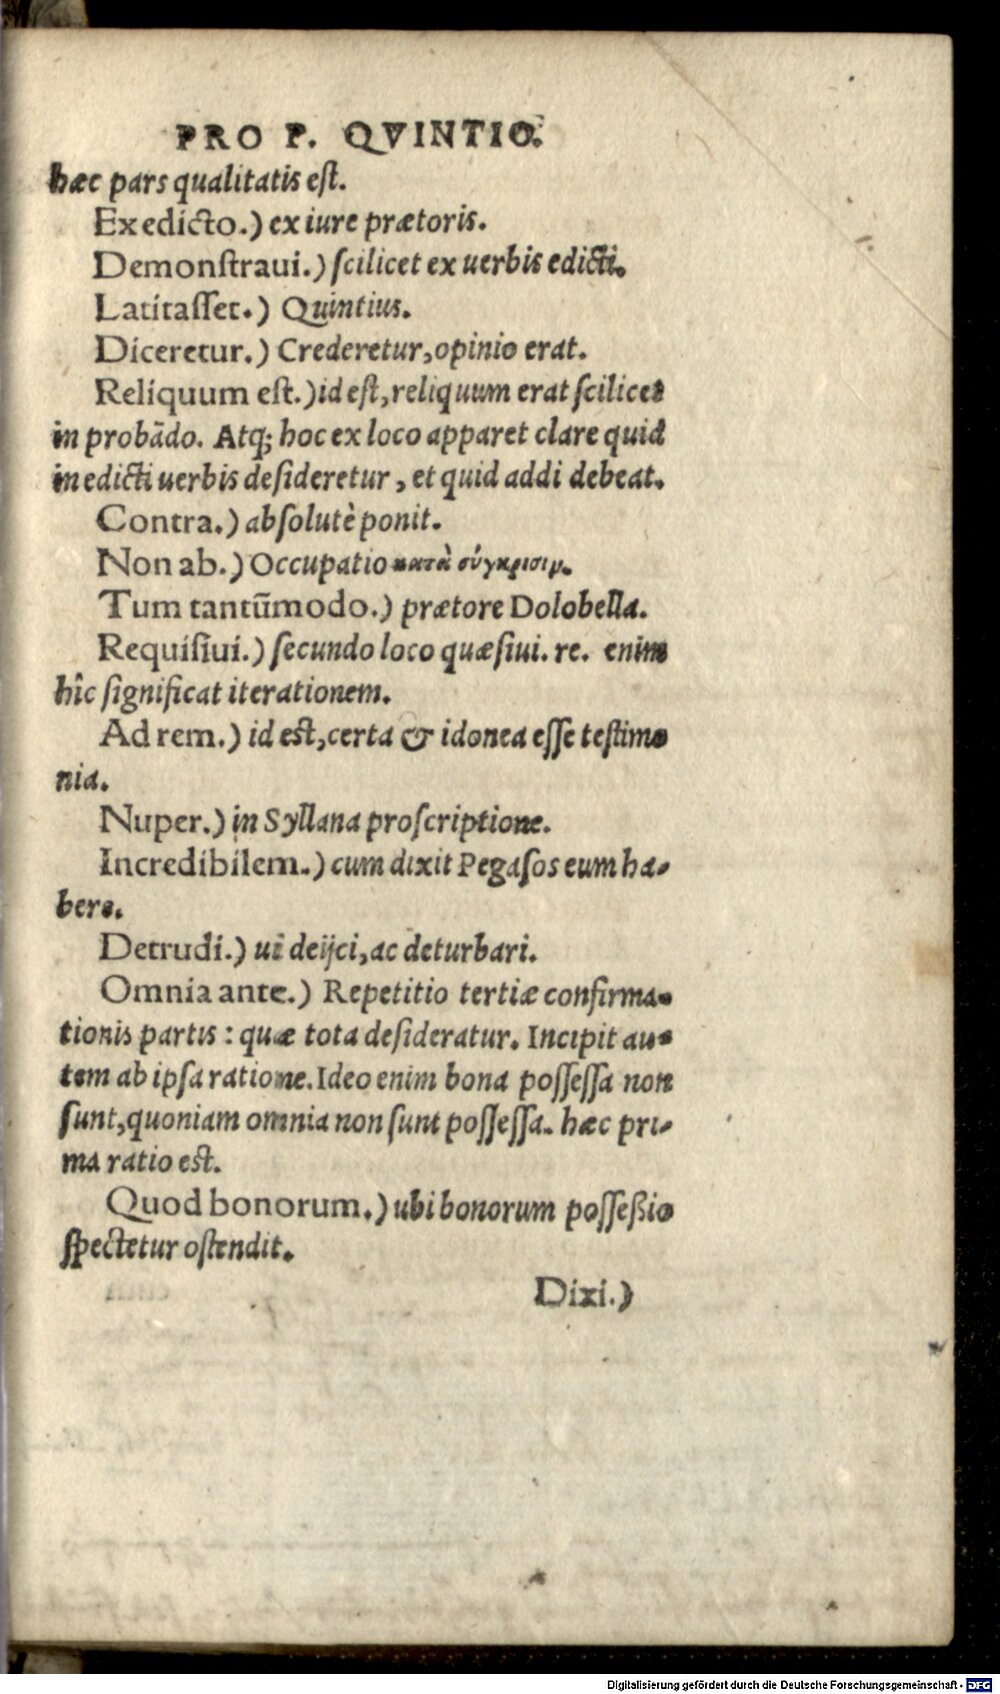 PRO P. QVINTIO.
hæc pars qualitatis est.
Ex edicto.) ex iure prætoris.
Demonſtraui.) ſcilicet ex uerbis edicti.
Latitaſſet.) Quintius.
Diceretur.) Crederetur, opinio erat.
Reliquum eſt.) id eſt, reliquum erat ſcilicet
in probãdo. Atq; hoc ex loco apparet clare quid
in edicti uerbis deſideretur, et quid addi debeat.
Contra.) abſolutè ponit.
Non ab.) Occupatio κατὰ σύγκρισιμ.
Tum tantũmodo.) prætore Dolobella.
Requiſiui.) ſecundo loco quæſiui. re. enim
hîc ſignificat iterationem.
Ad rem.) id est, certa & idonea eſſe teſtimo
nia.
Nuper.) in Syllana proſcriptione.
Incredibilem.) cum dixit Pegaſos eum ha-
bere.
Detrudi.) ui deijci, ac deturbari.
Omnia ante.) Repetitio tertiæ confirma-
tionis partis: quæ tota deſideratur. Incipit au-
tem ab ipſa ratione. Ideo enim bona poſſeſſa non
ſunt, quoniam omnia non ſunt poſſeſſa. hæc pri-
ma ratio est.
Quod bonorum.) ubi bonorum poſſeßio
ſpectetur oſtendit.
Dixi.)
Digitalisierung gefördert durch die Deutsche Forschungsgemeinschaft - DFG